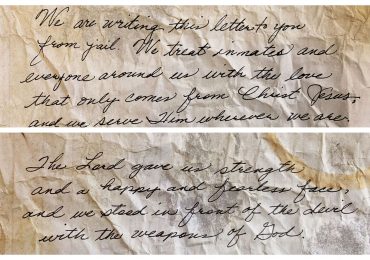 We are writing this letter to you
from jail. We treat inmates and
everyone around us with the love
that only comes from Christ Jesus,
and we serve Him wherever we are.
The Lord gave us strength
and a happy and fearless face,
and we stood in front of the devil
with the weapons of God.